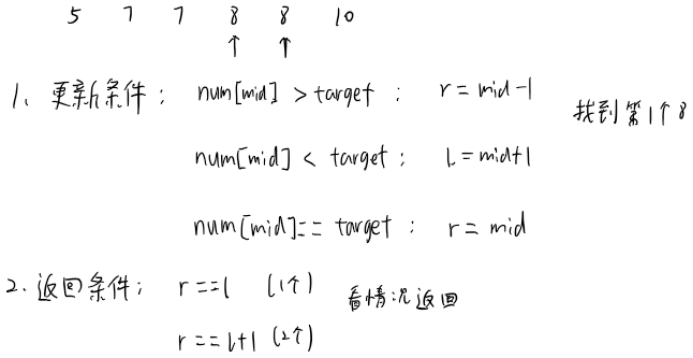 5 7 7 8 8 10
↑ ↑
1、更新条件： num[mid] > target : r = mid-1
找到第1个8
num[mid] < target : L = mid+1
num[mid] == target : r = mid
2. 返回条件； r==l (1个) 看情况返回
r == l+1 (2个)